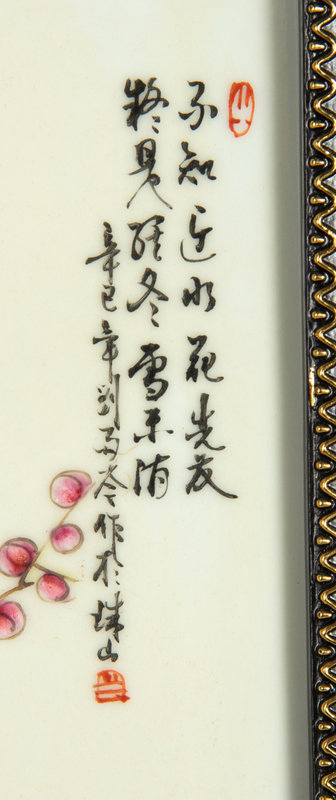 不知近水花先发
疑是經冬雪未消
辛巳年劉雨岑作於珠山